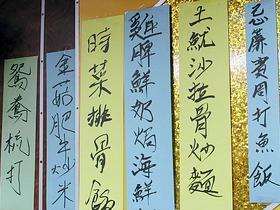 忌屏賓周打魚飯
土魷沙拉骨炒麵
雞脾鮮奶焗海鮮
時菜排骨飯
金菇肥牛炒米
鴛鴦梳打